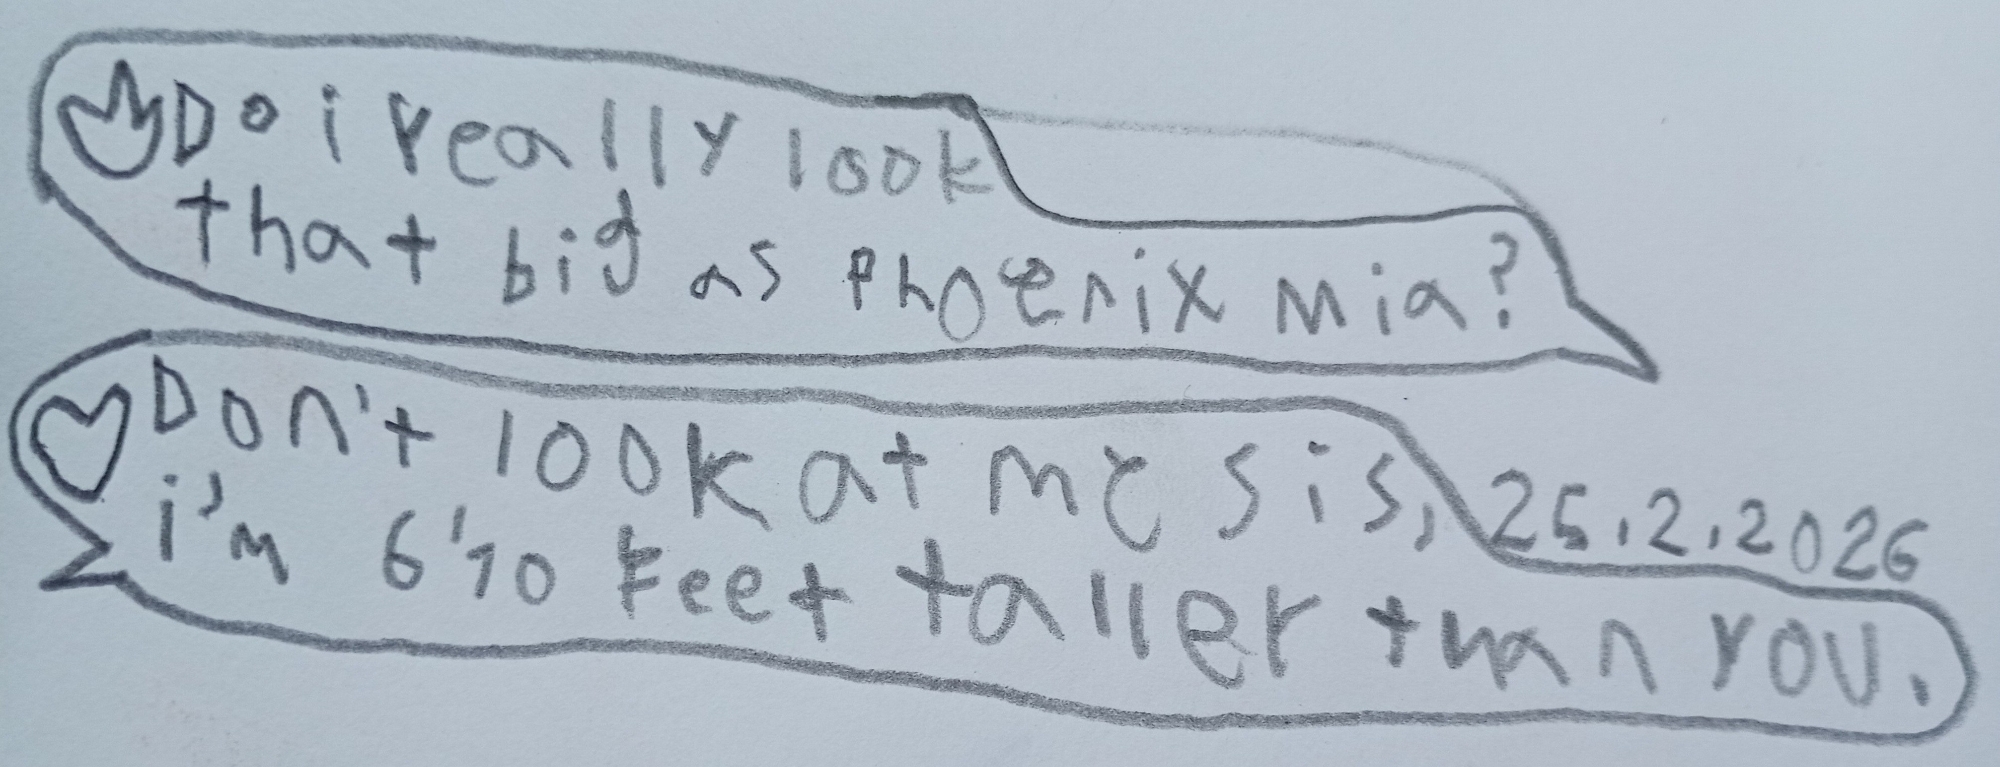 Do i really look
that big as Phoenix Mia?
Don't look at me sis,
i'm 6'10 feet taller than you.
25.2.2026